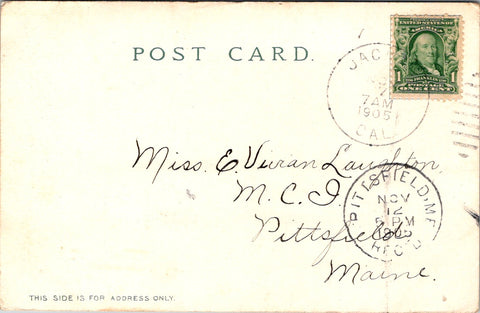 POST CARD.
UNITED STATES OF AMERICA
FRANKLIN
1 POSTAGE 1
ONE CENT
7 AM
1905
CAL.
Miss. E. Vivian Laughton.
M. C. I.
Pittsfield
Maine.
PITTSFIELD, ME.
NOV
12
PM
1905
REC'D
THIS SIDE IS FOR ADDRESS ONLY.